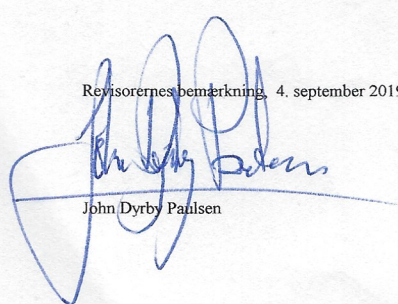 Revisorernes bemærkning, 4. september 2019
John Dyrby Paulsen
John Dyrby Paulsen